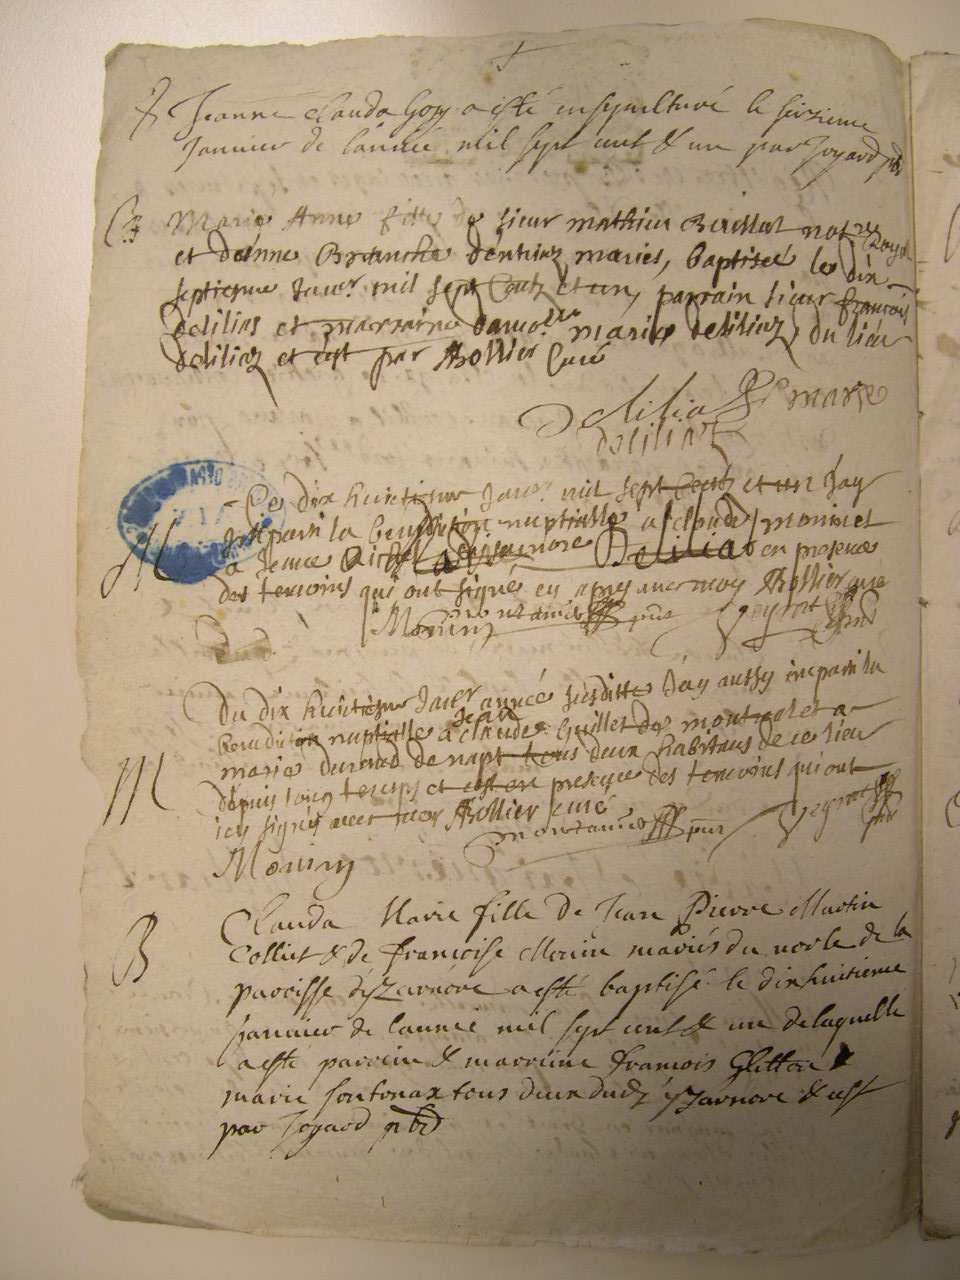 Jeanne Clauda Goy a esté ensepulturé le seizieme
Janvier de l'année mil sept cent & un par Joyard pbr
B
Marie Anne fille de sieur Mathieu Buillat not.re Royal
et d'Anne Branche d'entriaz maries, baptiseé le dix
septiesme Janer. mil sept Centz et un, parrain sieur françois
deliliaz et marraine damolle marie deliliaz du lieu
deliliaz et c'est par Mollier Curé
Delilia marie
deliliaz
Ce dix huictiesme Janer. mil sept Centz et un J'ay
imparti la benediction nuptialle a claude monin et
a Jeane en presence
des temoins qui ont signé en apres avec moy Mollier curé
Monin pnt
M
Du dix huictiesme Janer année susditte J'ay aussy imparti la
benediction nuptialle a Jean claude Guillet de montealet a
marie durand de napt tous deux habitans de ce lieu
depuis long temps et c'est en presence des temoins qui ont
icy signés avec moy Mollier curé
pnt
Monin
B
Clauda Marie fille de Jean Pierre Martin
Colliet & de françoise Monin mariés du de la
paroisse d'yzarnore a esté baptisé le dix huitieme
janvier de l'année mil sept cent & un de laquelle
a esté parrein & marreine françois &
marie sontonax tous deux dudt yzarnore & c'est
par Joyard pbr